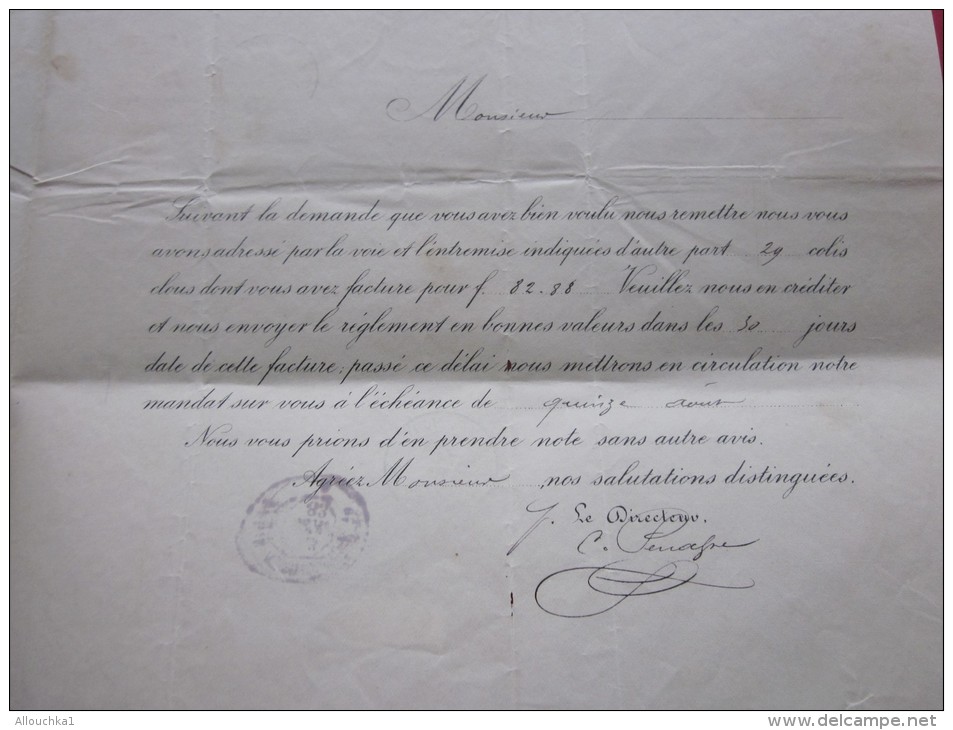 Monsieur
Suivant la demande que vous avez bien voulu nous remettre nous vous
avons adressé par la voie et l'entremise indiquées d'autre part 29 colis
clous dont vous avez facture pour f. 82.88 Veuillez nous en créditer
et nous envoyer le réglement en bonnes valeurs dans les 30 jours
date de cette facture; passé ce délai nous mettrons en circulation notre
mandat sur vous à l'échéance de quinze août
Nous vous prions d'en prendre note sans autre avis.
Agréez Monsieur, nos salutations distinguées.
Le Directeur.
C.
Allouchka1
www.delcampe.net